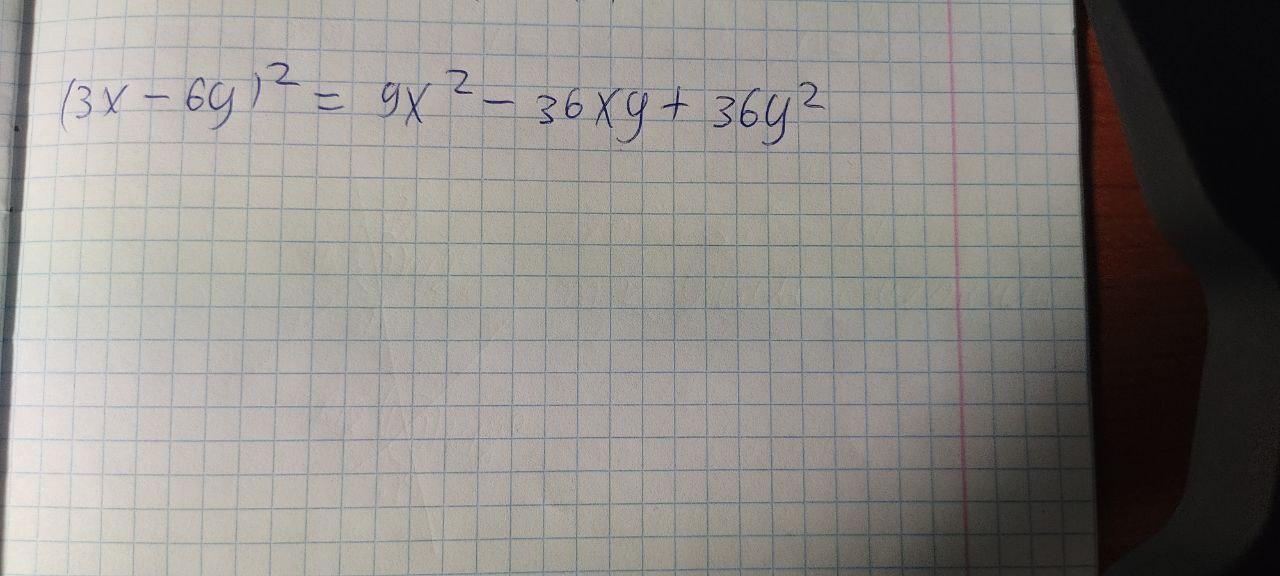 (3x - 6y)² = 9x² - 36xy + 36y²